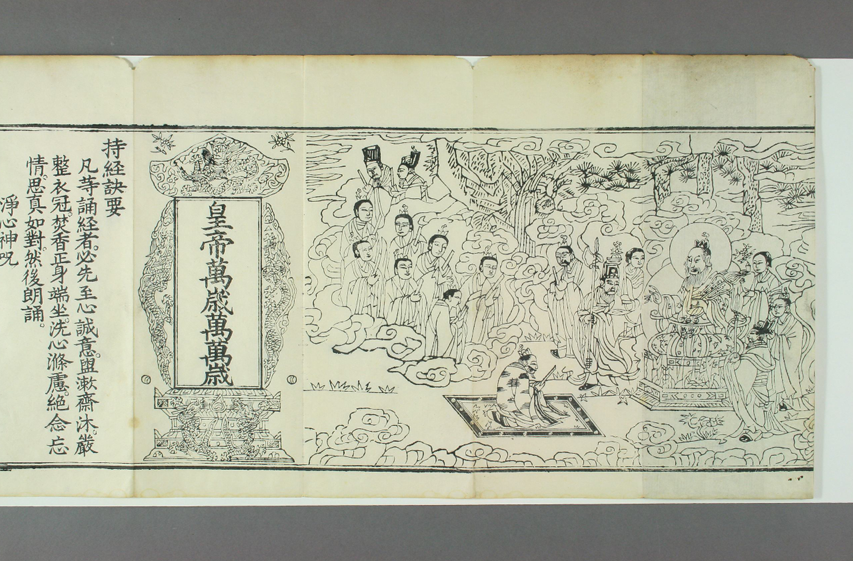 皇帝萬歲萬萬歲
持經訣要
凡等誦經者。必先至心誠意。盥漱齋沐嚴
整衣冠焚香正身端坐。洗心滌慮。絕念忘
情。思真如對。然後朗誦。
淨心神呪